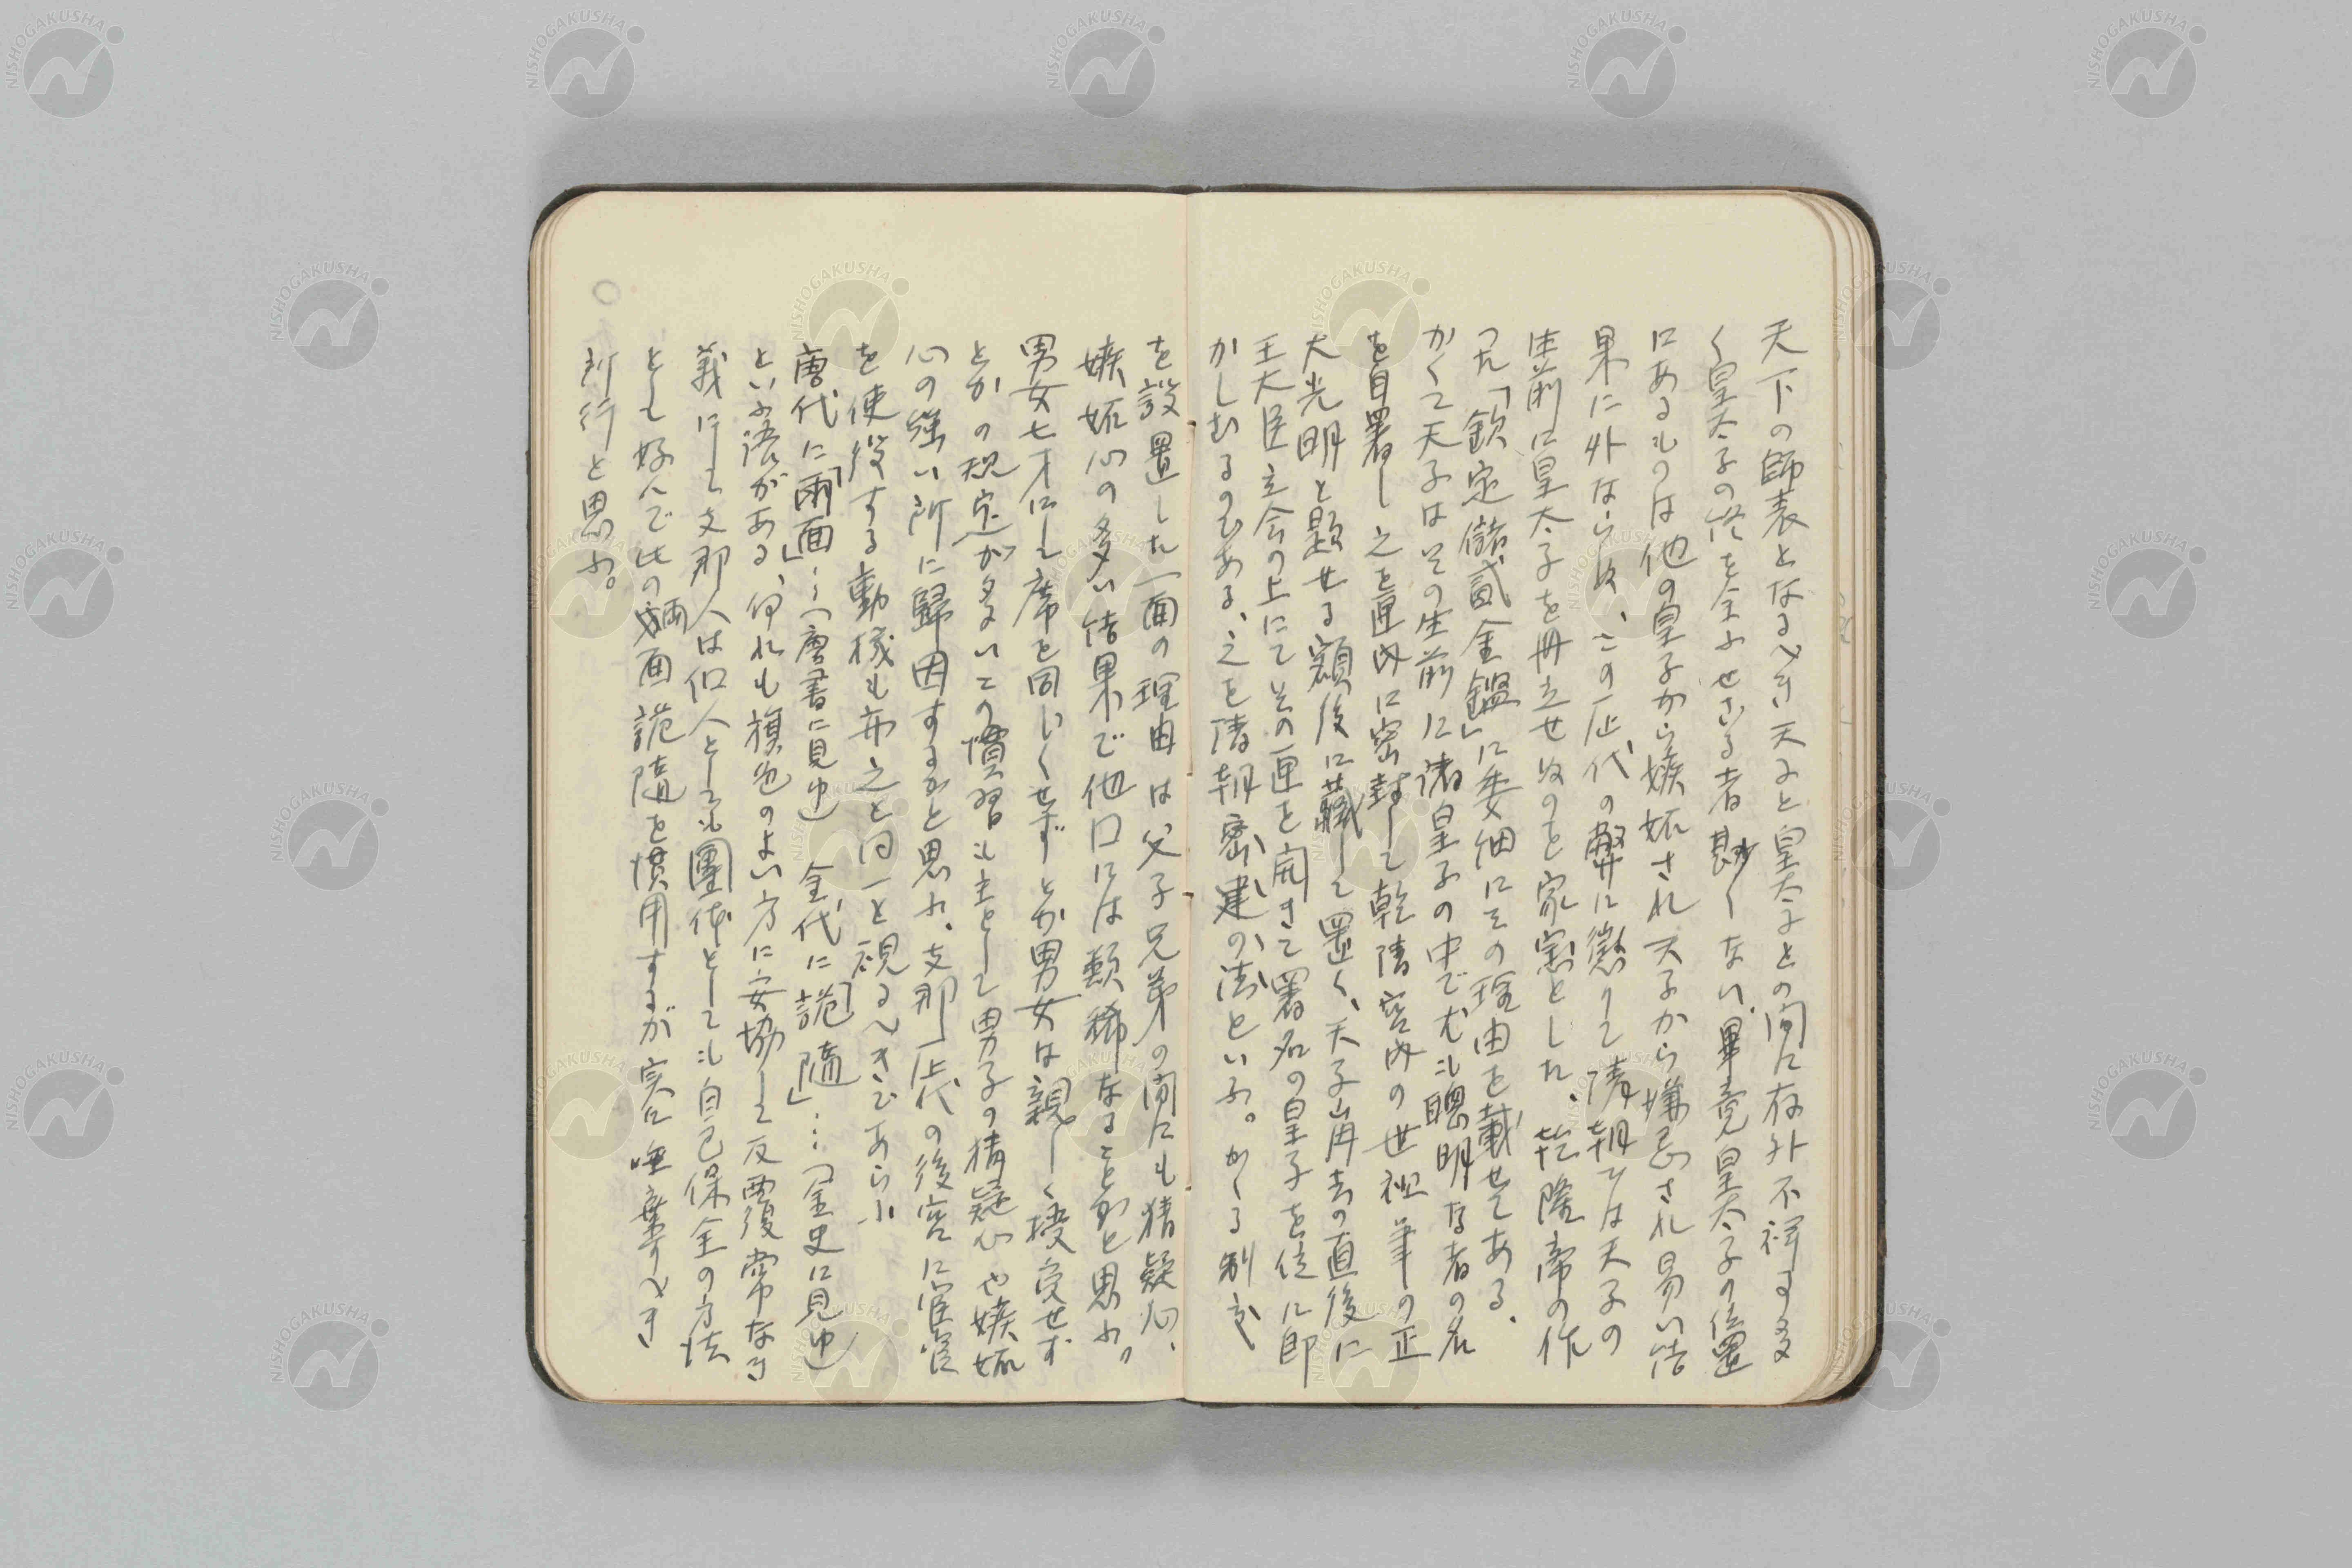 天下の師表となるべき天子と皇太子との間に存外不祥事多
く皇太子の終を全ふせざる者尠くない、畢竟皇太子の位置
にあるものは他の皇子から嫉妬され天子から嫌忌され易い結
果に外ならぬ、この歴代の弊に懲りて清朝では天子の
生前に皇太子を冊立せぬのを家憲とした、乾隆帝の作
つた「欽定儲貳金鑑」に委細にその理由を載せてある、
かくて天子はその生前に諸皇子の中で尤も聰明なる者の名
を自署し之を匣内に密封して乾清宮内の世祖筆の正
大光明と題せる額後に藏して置く、天子崩去の直後に
王大臣立会の上にてその匣を開きて署名の皇子を位に即
かしむるのである、之を清朝密建の法といふ。かゝる制度
を設置した一面の理由は父子兄弟の間にも猜疑心、
嫉妬心の多い結果で他国には類稀なることかと思ふ。
男女七才にして席を同じくせずとか男女は親しく授受せず
とかの規定が多いての慣習も主として男子の猜疑心や嫉妬
心の強い所に歸因するかと思ふ、支那歴代の後宮に宦官
を使役する動機も亦之と同一と視るべきであらふ
唐代に「兩面」…（唐書に見ゆ）　金代に「詭隨」…（金史に見ゆ）
といふ語がある、何れも旗色のよい方に妥協して反覆常なき
義にして支那人は個人としても團体としても自己保全の方法
として好んで此の兩面詭隨を慣用するが実に唾棄すべき
所行と思ふ。
NISHOGAKUSHA